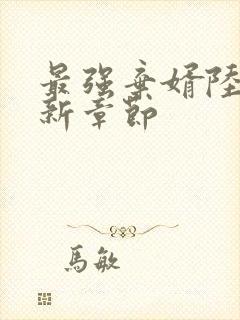 最强棄婿陸
新章節
馬敏